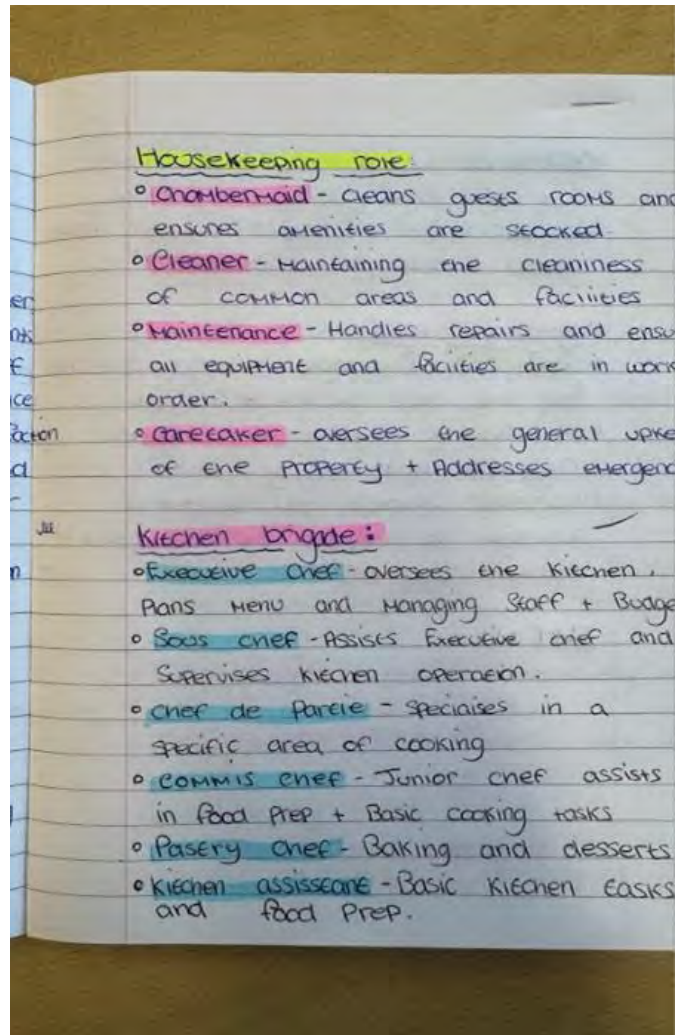 er
nts
f
ce
action
d
n
Housekeeping role:
° Chambermaid - cleans guests rooms and
ensures amenities are stocked
° Cleaner - Maintaining the cleaniness
of common areas and facilities
° Maintenance - Handles repairs and ensu
all equipment and facilities are in work
order.
° Caretaker - oversees the general upke
of the Property + Addresses emergenc
Kitchen brigade:
° Executive chef - oversees the kitchen.
Plans Menu and Managing Staff + Budge
° Sous chef - Assists Executive chef and
Supervises kitchen operation.
° chef de Partie - specialises in a
specific area of cooking
° commis chef - Junior chef assists
in food Prep + Basic cooking tasks
° Pastry chef - Baking and desserts
° kitchen assisstant - Basic kitchen tasks
and food Prep.